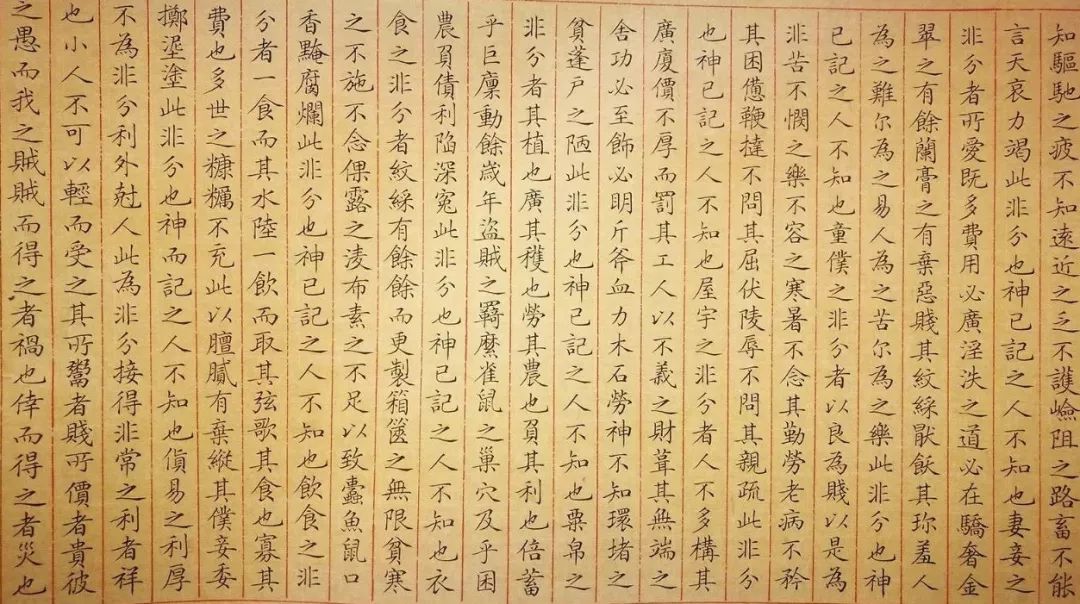 知驅馳之疲不知遠近之乏不護嶮阻之路畜不能
言天哀力竭此非分也神已記之人不知也妻妾之
非分者所愛既多費用必廣淫泆之道必在驕奢金
翠之有餘蘭膏之有棄惡賤其紋綵猒飫其珎羞人
為之難尔為之易人為之苦尔為之樂此非分也神
已記之人不知也童僕之非分者以良為賤以是為
非苦不憫之樂不容之寒暑不念其勤勞老病不矜
其困憊鞭撻不問其屈伏陵辱不問其親疏此非分
也神已記之人不知也屋宇之非分者人不多構其
廣廈價不厚而罰其工人以不義之財葺其無端之
舍功必至飾必明斤斧血力木石勞神不知環堵之
貧蓬戶之陋此非分也神已記之人不知也粟帛之
非分者其植也廣其穫也勞其農也負其利也倍蓄
乎巨廩動餘歲年盜賊之羈縻雀鼠之巢穴及乎困
農負債利陷深冤此非分也神已記之人不知也衣
食之非分者紋綵有餘餘而更製箱篋之無限貧寒
之不施不念倮露之凌布素之不足以致蠹魚鼠口
香黦腐爛此非分也神已記之人不知也飲食之非
分者一食而其水陸一飲而取其弦歌其食也寡其
費也多世之糠糲不充此以膻膩有棄縱其僕妾委
擲埿塗此非分也神而記之人不知也貨易之利厚
不為非分利外尅人此為非分接得非常之利者祥
也小人不可以輕而受之其所鬻者賤所價者貴彼
之愚而我之賊賊而得之者禍也倖而得之者災也